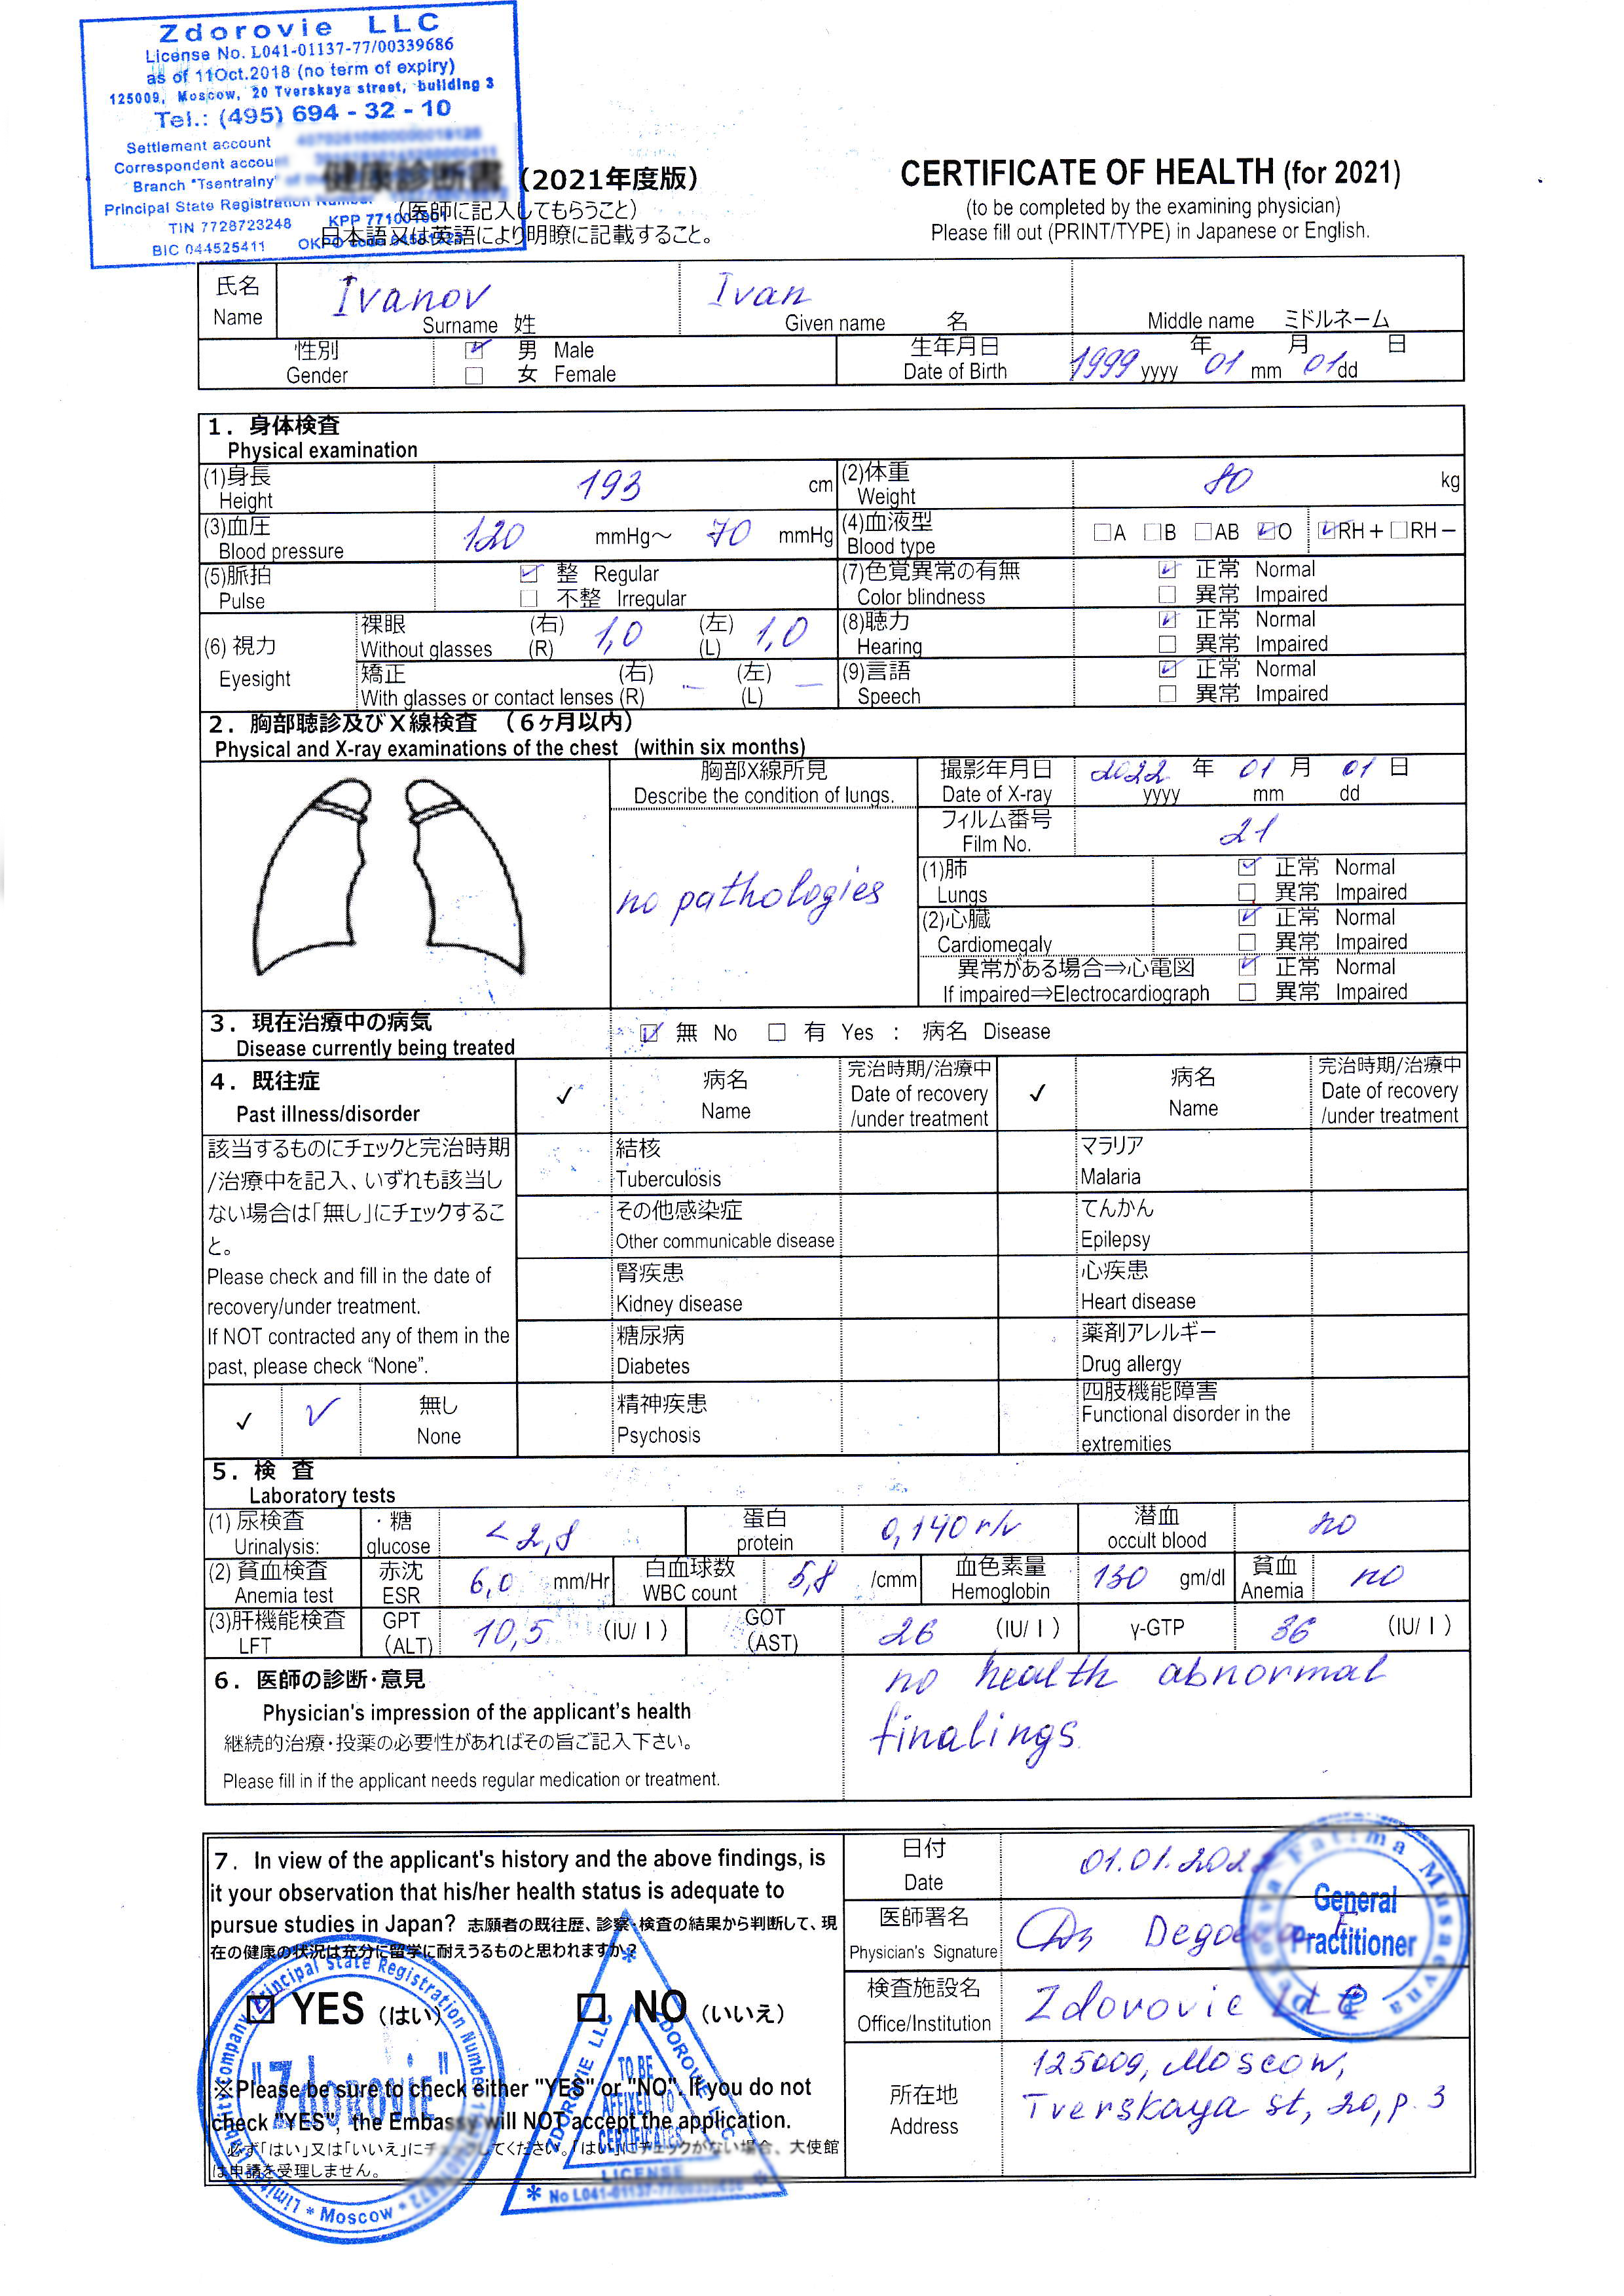 Zdorovie LLC
License No. L041-01137-77/00339686
as of 11Oct.2018 (no term of expiry)
125009, Moscow, 20 Tverskaya street, building 3
Tel.: (495) 694 - 32 - 10
Settlement account
Correspondent accou
Branch "Tsentralny"
Principal State Registration Number
TIN 7728723248 KPP 771001001
BIC 044525411 OKPO code
健康診断書 (2021年度版)
(医師に記入してもらうこと)
日本語又は英語により明瞭に記載すること。
CERTIFICATE OF HEALTH (for 2021)
(to be completed by the examining physician)
Please fill out (PRINT/TYPE) in Japanese or English.
氏名 Name Ivanov Surname 姓 Ivan Given name 名 Middle name ミドルネーム
性別 Gender ☑ 男 Male
□ 女 Female
生年月日 Date of Birth 1999 年 yyyy 01 月 mm 01 日 dd
1. 身体検査
Physical examination
(1)身長 Height 193 cm (2)体重 Weight 80 kg
(3)血圧 Blood pressure 120 mmHg~ 70 mmHg (4)血液型 Blood type □A □B □AB ☑O ☑RH+ □RH−
(5)脈拍 Pulse ☑ 整 Regular
□ 不整 Irregular
(7)色覚異常の有無 Color blindness ☑ 正常 Normal
□ 異常 Impaired
(6) 視力 Eyesight
裸眼 Without glasses (右) (R) 1,0 (左) (L) 1,0
(8)聴力 Hearing ☑ 正常 Normal
□ 異常 Impaired
矯正 With glasses or contact lenses (右) (R) – (左) (L) –
(9)言語 Speech ☑ 正常 Normal
□ 異常 Impaired
2. 胸部聴診及びX線検査 (6ヶ月以内)
Physical and X-ray examinations of the chest (within six months)
胸部X線所見
Describe the condition of lungs.
no pathologies
撮影年月日 Date of X-ray 2022 年 yyyy 01 月 mm 01 日 dd
フィルム番号 Film No. 21
(1)肺 Lungs ☑ 正常 Normal
□ 異常 Impaired
(2)心臓 Cardiomegaly ☑ 正常 Normal
□ 異常 Impaired
異常がある場合⇒心電図 ☑ 正常 Normal
If impaired⇒Electrocardiograph □ 異常 Impaired
3. 現在治療中の病気
Disease currently being treated
☑ 無 No □ 有 Yes : 病名 Disease
4. 既往症
Past illness/disorder
✓ 病名 Name 完治時期/治療中 Date of recovery /under treatment ✓ 病名 Name 完治時期/治療中 Date of recovery /under treatment
該当するものにチェックと完治時期
/治療中を記入、いずれも該当し
ない場合は「無し」にチェックするこ
と。
Please check and fill in the date of
recovery/under treatment.
If NOT contracted any of them in the
past, please check "None".
✓ ✓ 無し None
結核 Tuberculosis マラリア Malaria
その他感染症 Other communicable disease てんかん Epilepsy
腎疾患 Kidney disease 心疾患 Heart disease
糖尿病 Diabetes 薬剤アレルギー Drug allergy
精神疾患 Psychosis 四肢機能障害 Functional disorder in the extremities
5. 検 査
Laboratory tests
(1) 尿検査 Urinalysis: ・糖 glucose <2,8 蛋白 protein 0,140 г/л 潜血 occult blood no
(2) 貧血検査 Anemia test 赤沈 ESR 6,0 mm/Hr 白血球数 WBC count 5,8 /cmm 血色素量 Hemoglobin 130 gm/dl 貧血 Anemia no
(3)肝機能検査 LFT GPT (ALT) 10,5 (IU/l) GOT (AST) 26 (IU/l) γ-GTP 36 (IU/l)
6. 医師の診断・意見
Physician's impression of the applicant's health
継続的治療・投薬の必要性があればその旨ご記入下さい。
Please fill in if the applicant needs regular medication or treatment.
no health abnormal
findings
7. In view of the applicant's history and the above findings, is
it your observation that his/her health status is adequate to
pursue studies in Japan? 志願者の既往歴、診察・検査の結果から判断して、現
在の健康の状況は充分に留学に耐えうるものと思われますか?
☑ YES (はい) □ NO (いいえ)
※Please be sure to check either "YES" or "NO". If you do not
check "YES", the Embassy will NOT accept the application.
必ず「はい」又は「いいえ」にチェックしてください。「はい」にチェックがない場合、大使館
は申請を受理しません。
日付 Date 01.01.202
医師署名 Physician's Signature Degoeva F
検査施設名 Office/Institution Zdorovie LLC
所在地 Address 125009, Moscow,
Tverskaya st, 20, p. 3
Fatima Musaevna
General
Practitioner
Limited Liability company Principal State Registration Number
"Zdorovie"
* Moscow *
ZDOROVIE LLC
ZDOROVIE LLC
TO BE
AFFIXED TO
CERTIFICATES
LICENSE
No L041-01137-77/